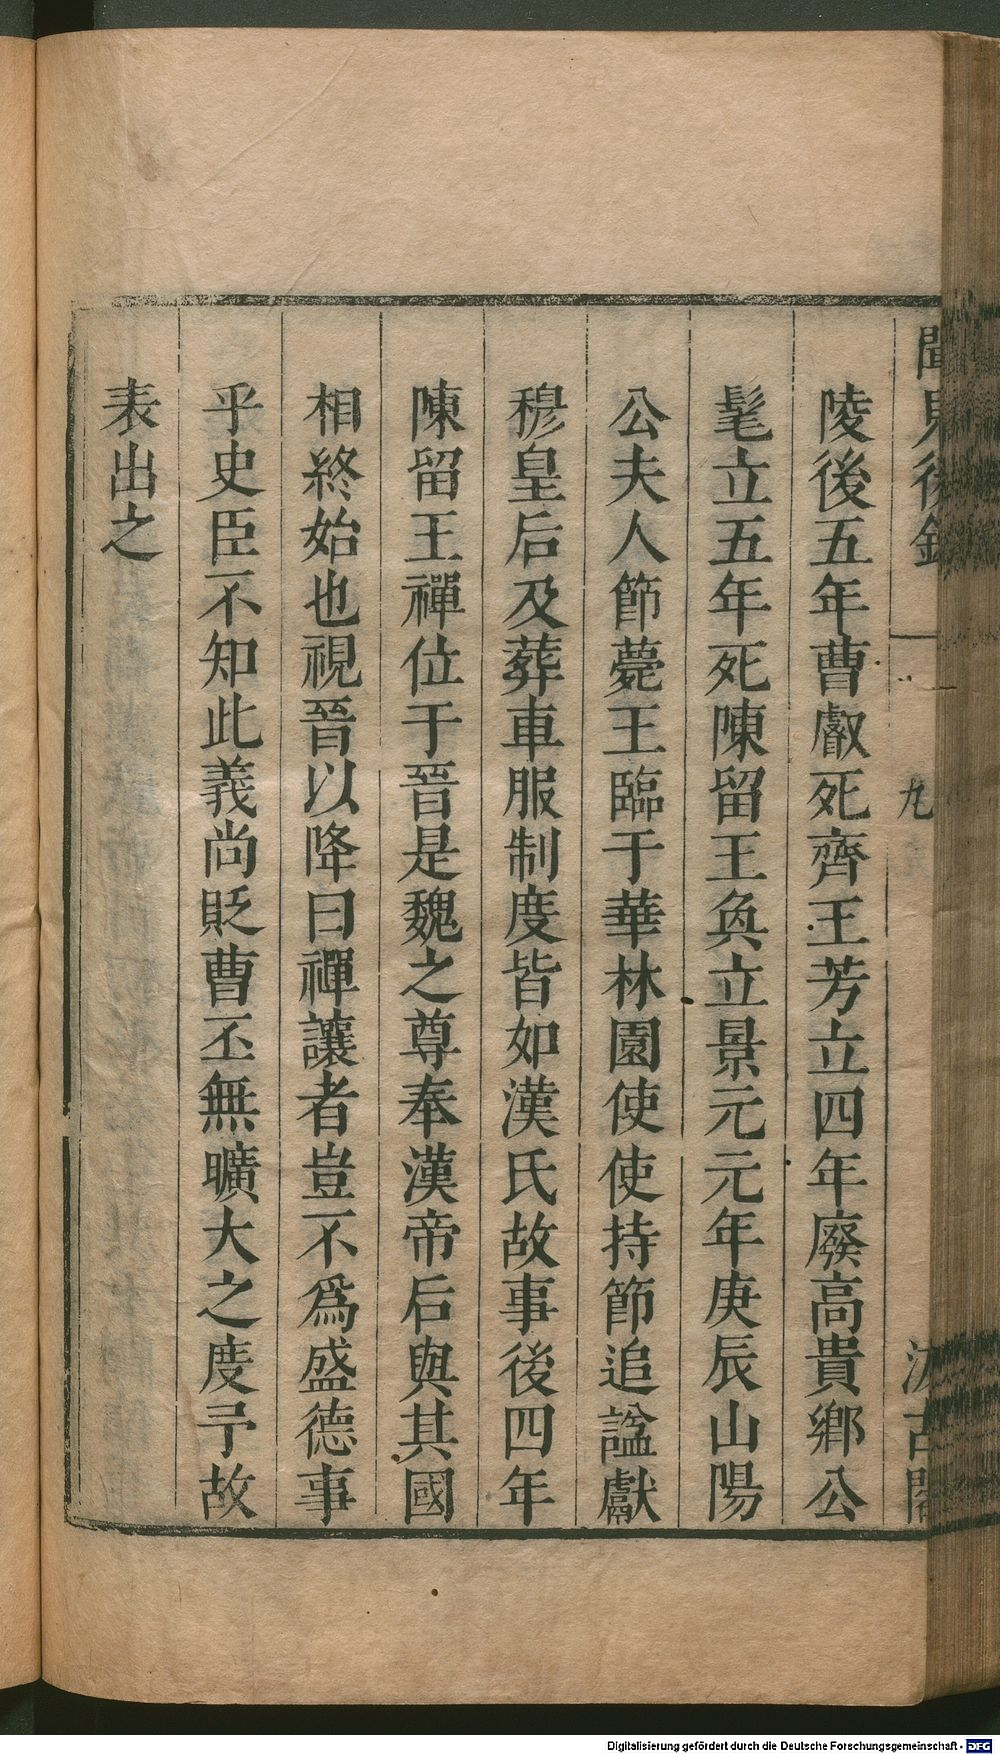 聞見後錄 九 汲古閣
陵後五年曹叡死齊王芳立四年廢高貴鄉公
髦立五年死陳留王奐立景元元年庚辰山陽
公夫人節薨王臨于華林園使使持節追諡獻
穆皇后及葬車服制度皆如漢氏故事後四年
陳留王禪位于晉是魏之尊奉漢帝后與其國
相終始也視晉以降曰禪讓者豈不爲盛德事
乎史臣不知此義尚貶曹丕無曠大之度予故
表出之
Digitalisierung gefördert durch die Deutsche Forschungsgemeinschaft - DFG